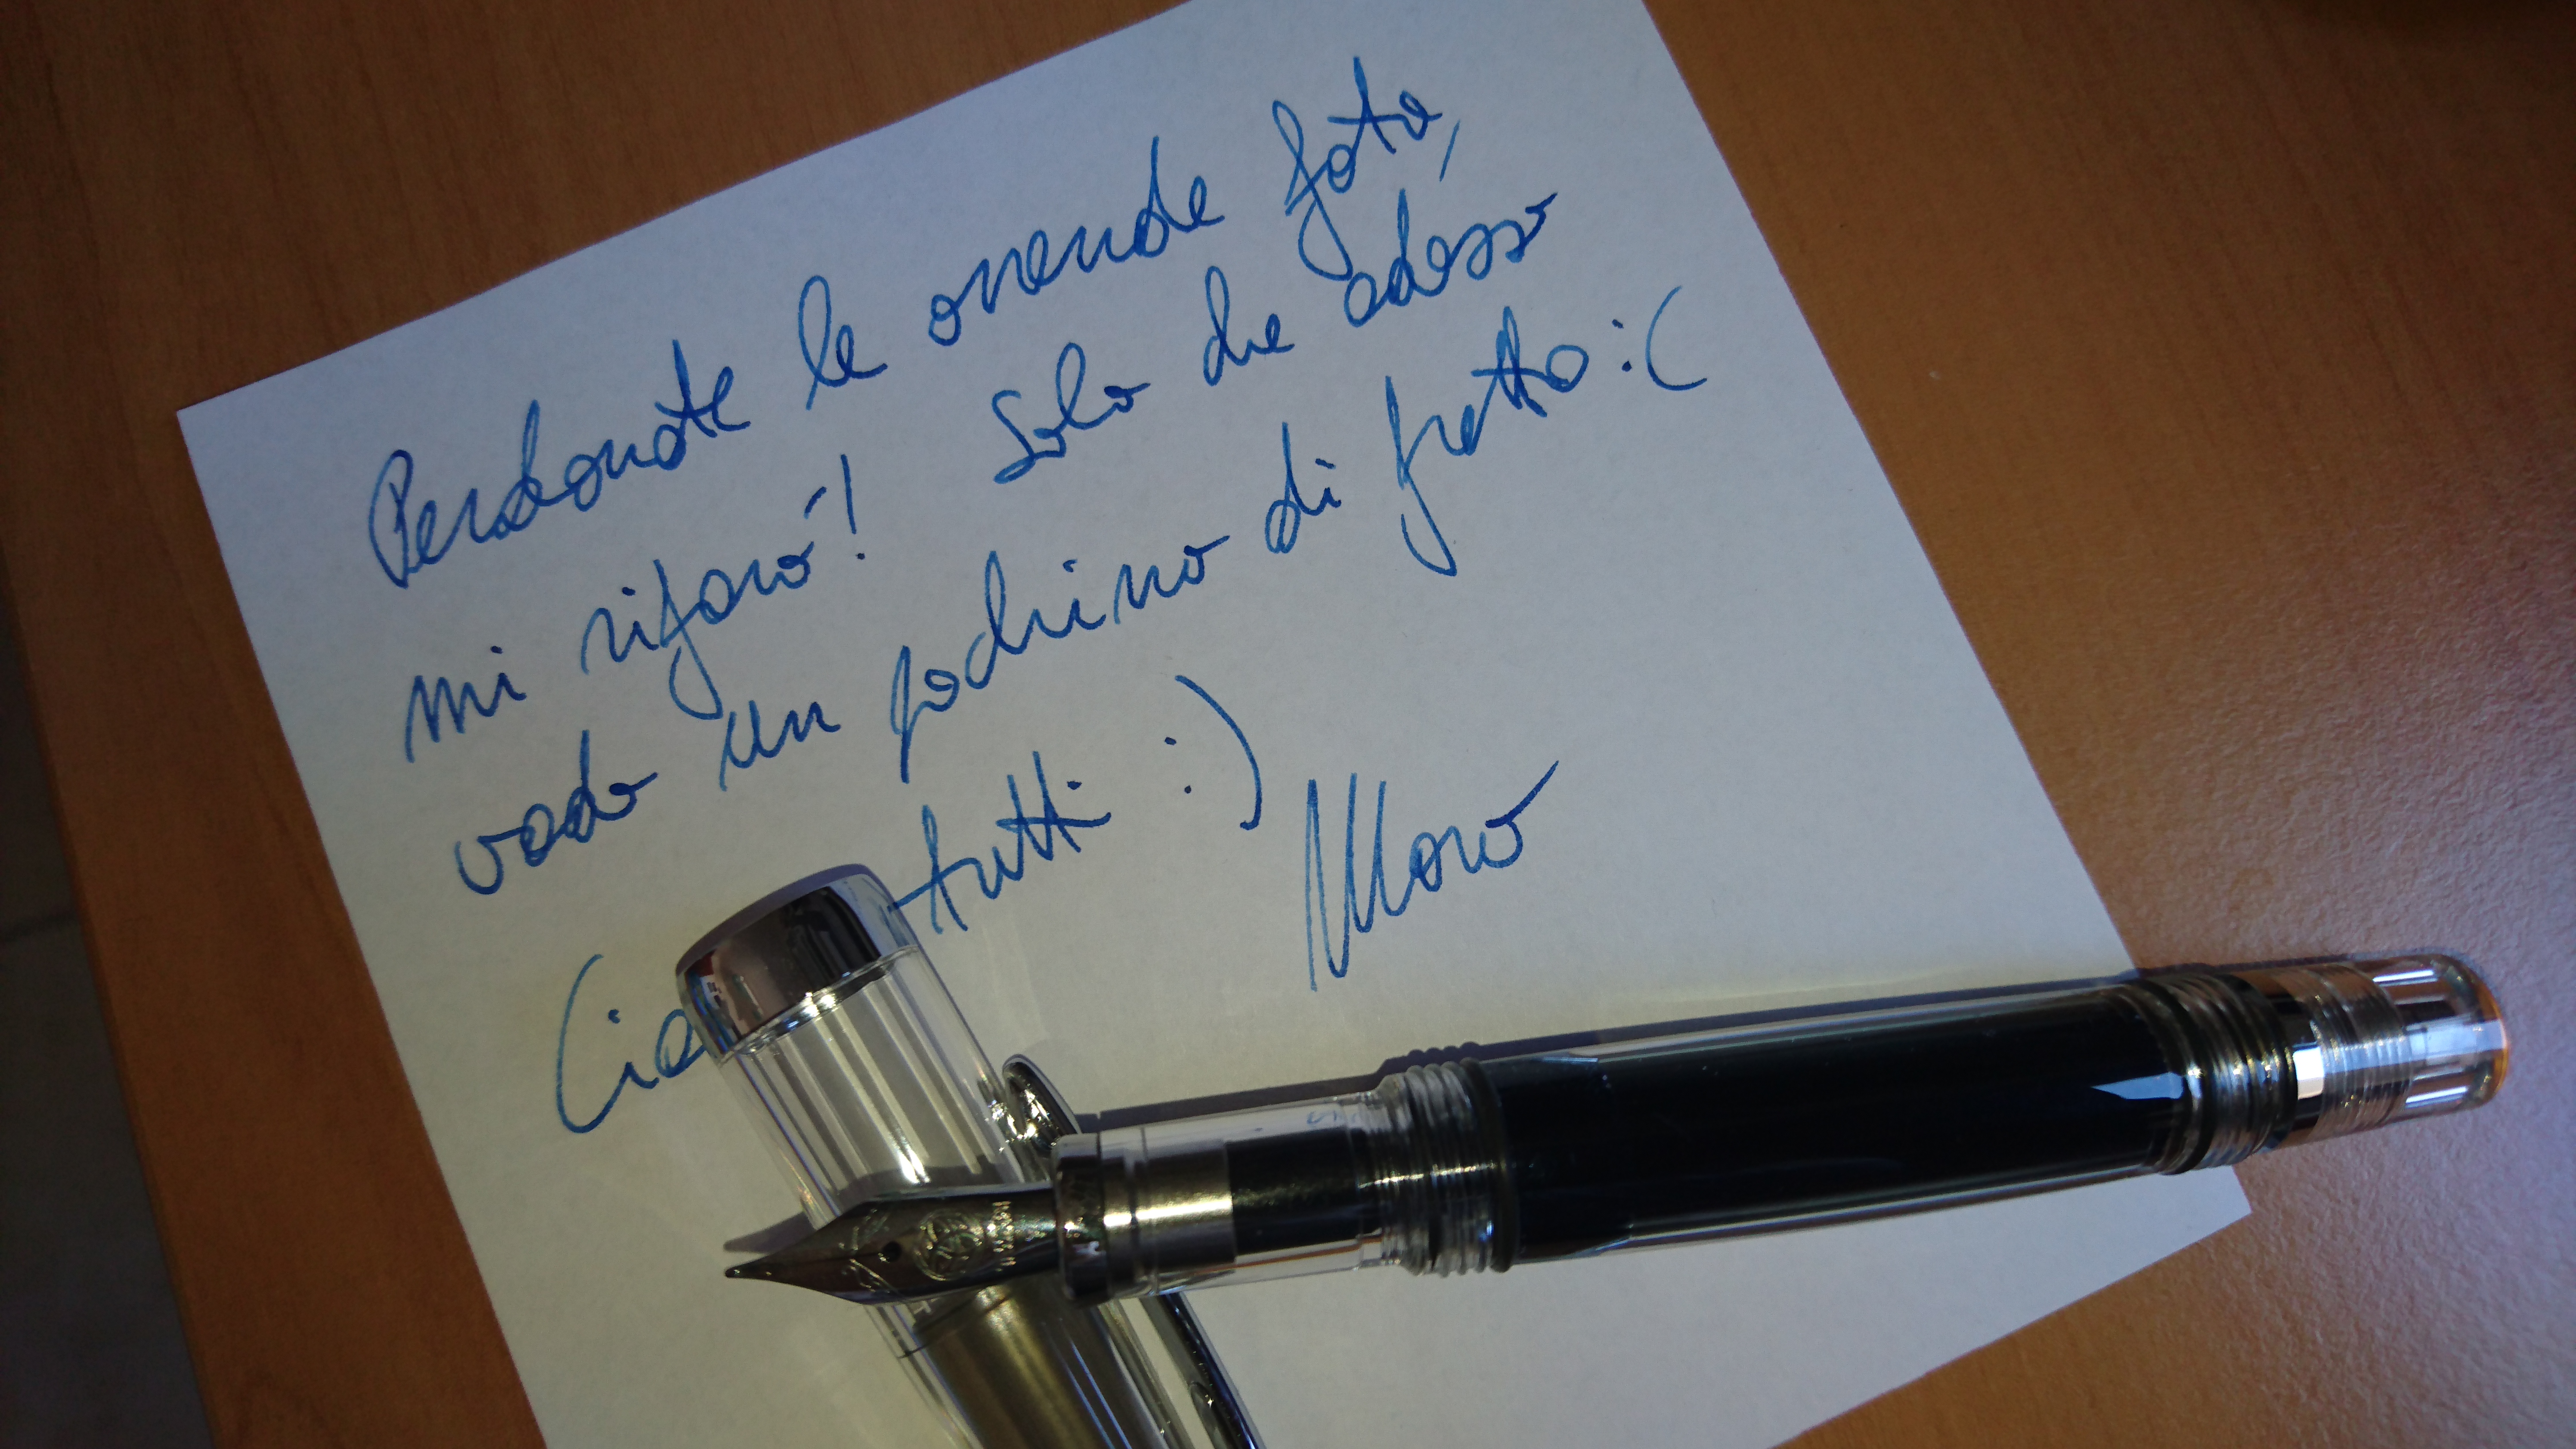 Perdonate le orrende foto,
mi rifarò! Solo che adesso
vado un pochino di fretta :(
Cia tutti :)